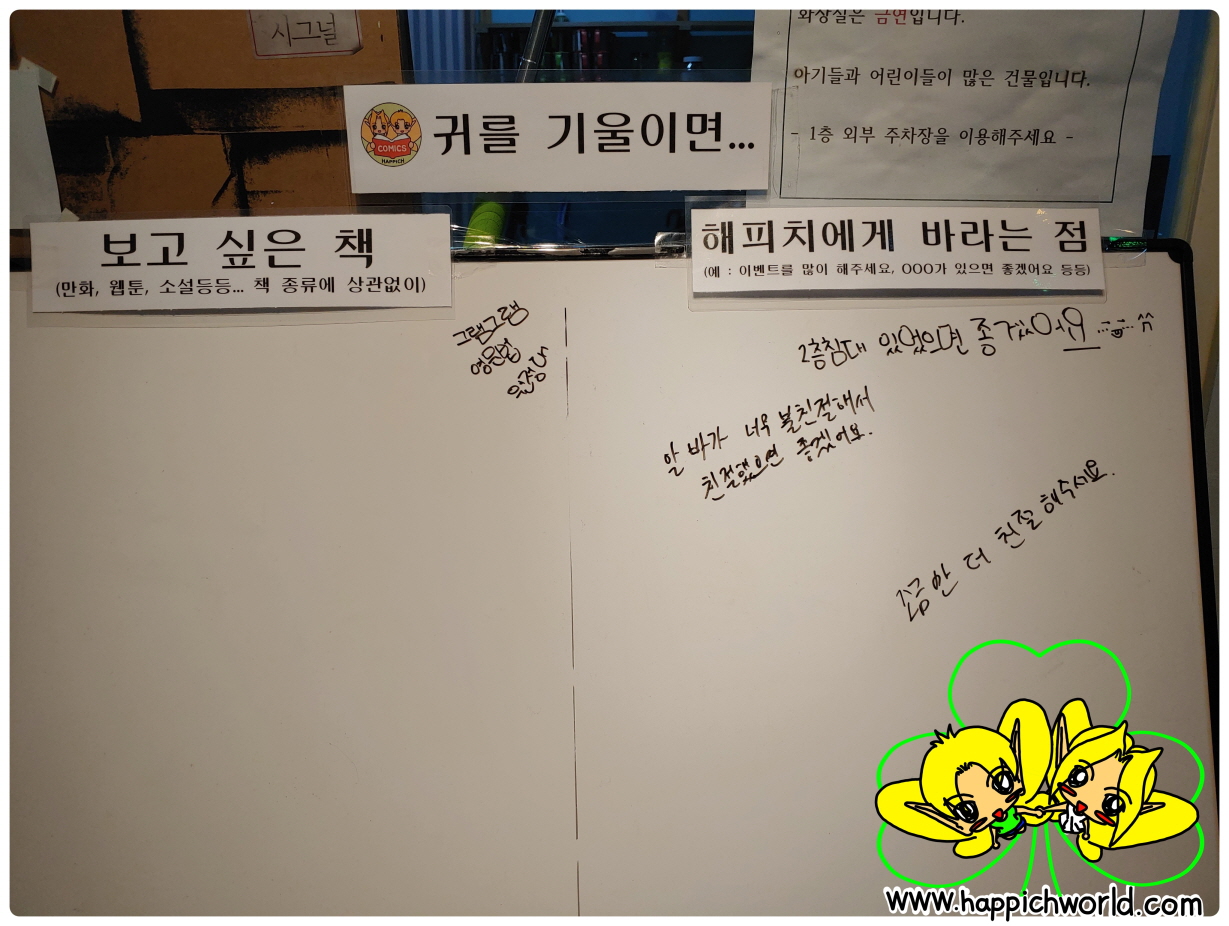 시그널
화장실은 금연입니다.
아기들과 어린이들이 많은 건물입니다.
- 1층 외부 주차장을 이용해주세요 -
COMICS
HAPPICH
귀를 기울이면...
보고 싶은 책
(만화, 웹툰, 소설등등... 책 종류에 상관없이)
해피치에게 바라는 점
(예 : 이벤트를 많이 해주세요, OOO가 있으면 좋겠어요 등등)
그램그램
영문법
원정대
2층침대 있었으면 좋겠어요 ^^
알바가 너무 불친절해서
친절했으면 좋겠어요.
조금만 더 친절해주세요.
www.happichworld.com